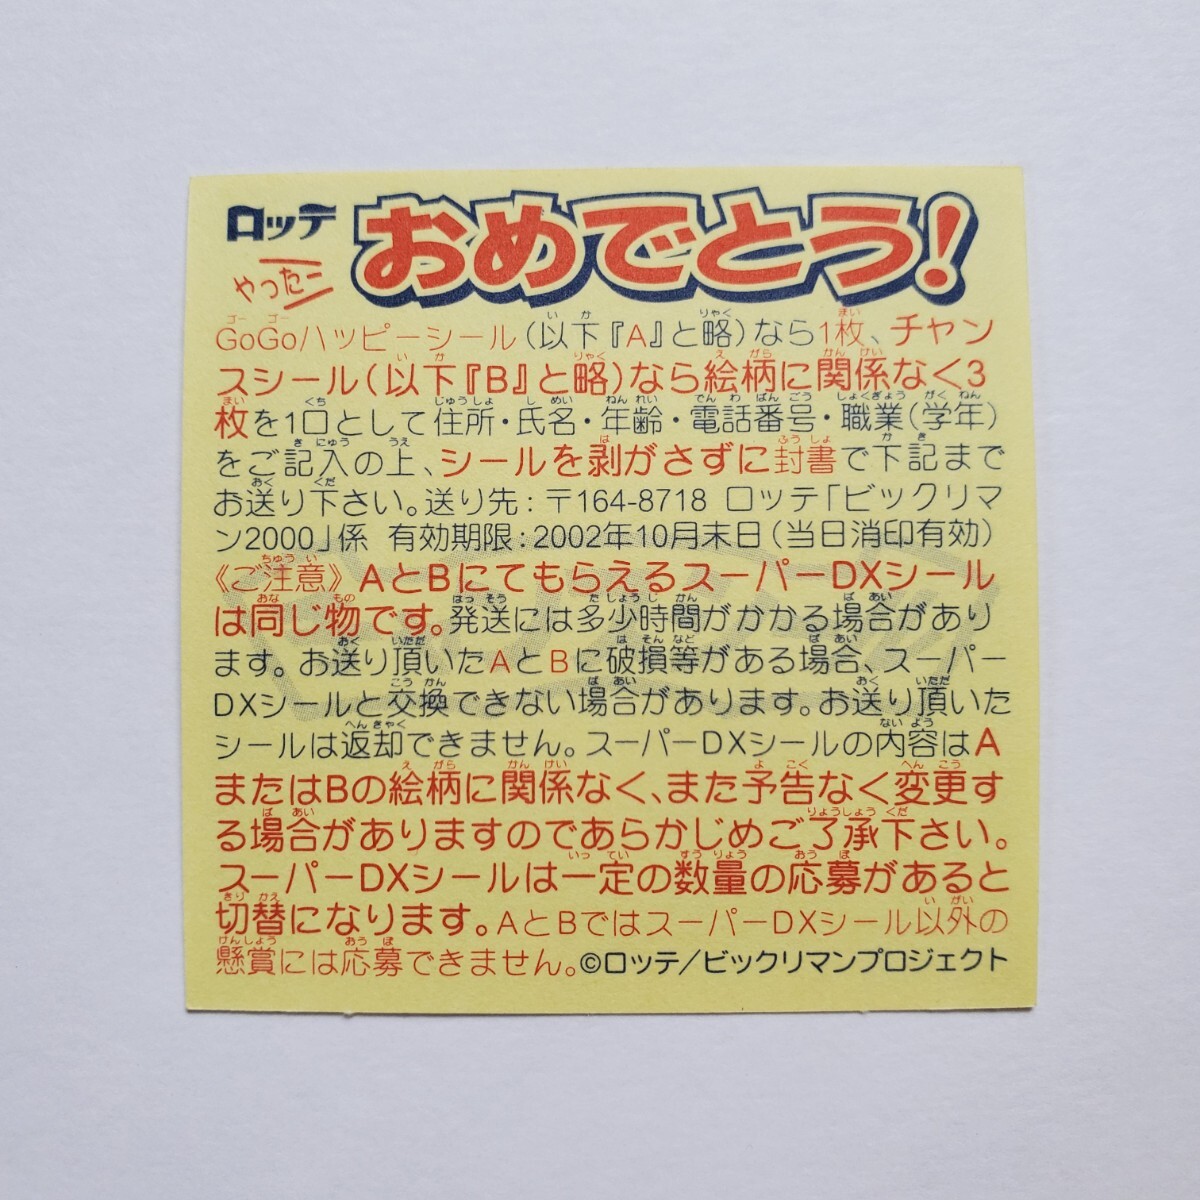 ロッテ おめでとう!
やったー
GoGoハッピーシール(以下『A』と略)なら1枚、チャン
スシール(以下『B』と略)なら絵柄に関係なく3
枚を1口として住所・氏名・年齢・電話番号・職業(学年)
をご記入の上、シールを剥がさずに封書で下記まで
お送り下さい。送り先:〒164-8718 ロッテ「ビックリマ
ン2000」係 有効期限:2002年10月末日(当日消印有効)
《ご注意》AとBにてもらえるスーパーDXシール
は同じ物です。発送には多少時間がかかる場合があり
ます。お送り頂いたAとBに破損等がある場合、スーパー
DXシールと交換できない場合があります。お送り頂いた
シールは返却できません。スーパーDXシールの内容はA
またはBの絵柄に関係なく、また予告なく変更す
る場合がありますのであらかじめご了承下さい。
スーパーDXシールは一定の数量の応募があると
切替になります。AとBではスーパーDXシール以外の
懸賞には応募できません。©ロッテ/ビックリマンプロジェクト